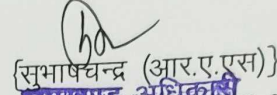 {सुभाषचन्द्र (आर.ए.एस)}
अधिकारी